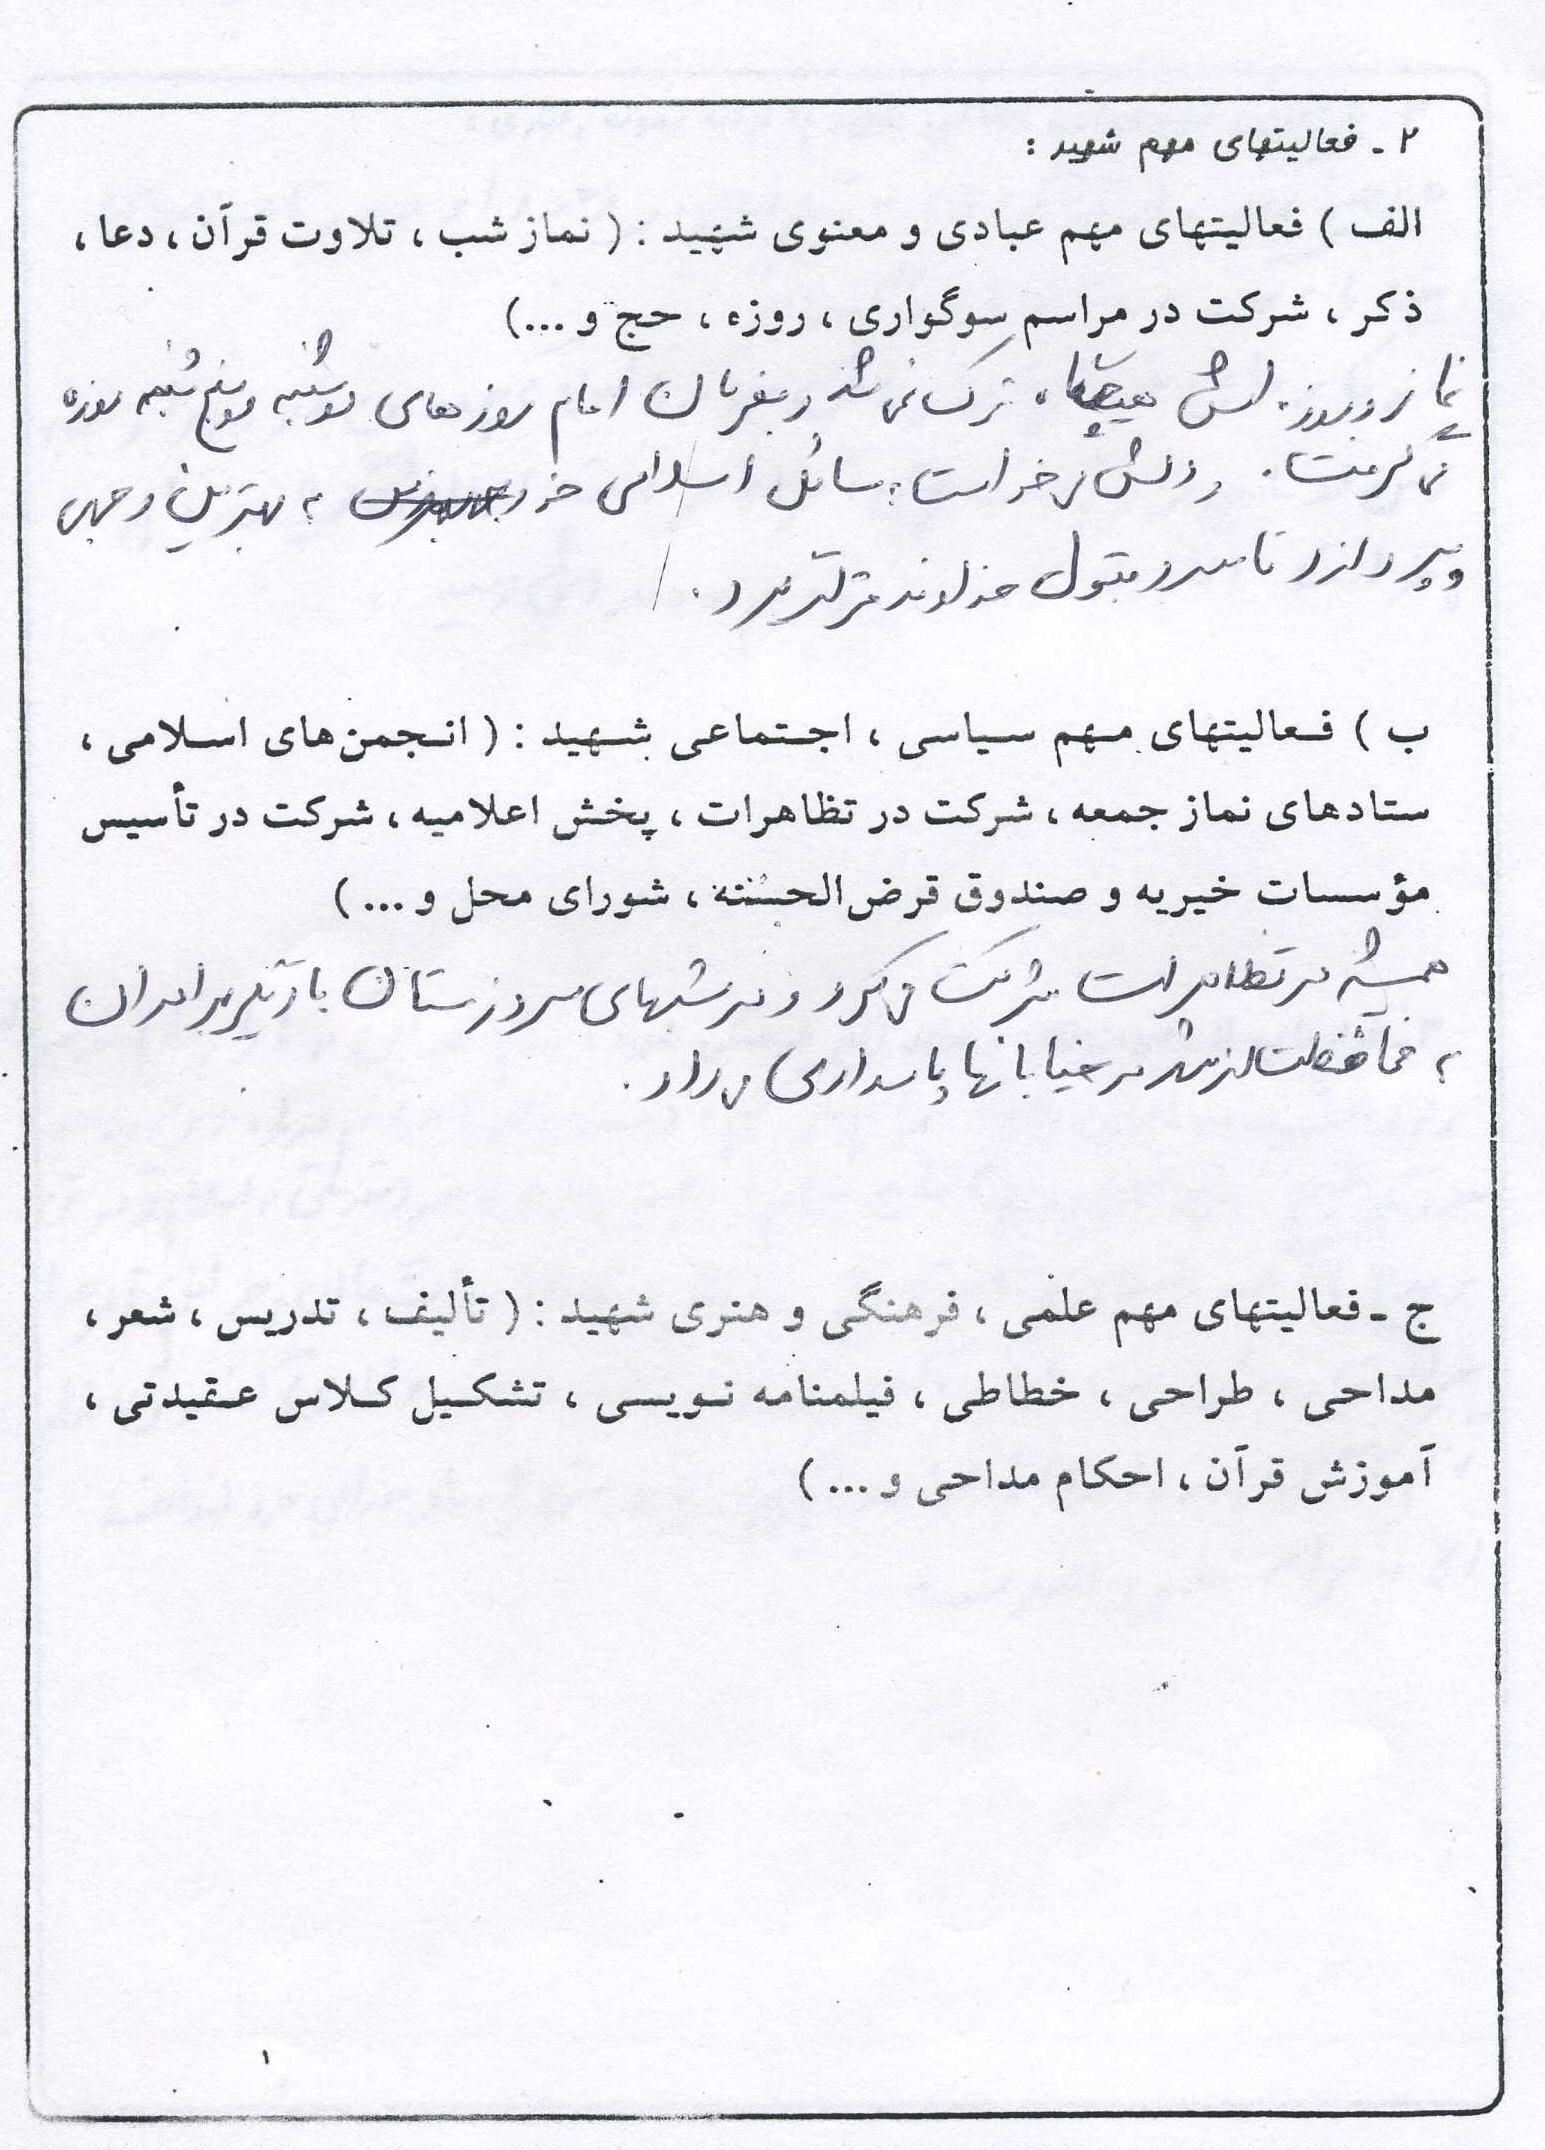 ۲ - فعالیتهای مهم شهید :
الف ) فعالیتهای مهم عبادی و معنوی شهید : ( نماز شب ، تلاوت قرآن ، دعا ،
ذکر ، شرکت در مراسم سوگواری ، روزه ، حج و ...)
نماز و روزه اش هیچگاه ترک نمی شد و بفرمان امام روزهای دوشنبه و پنج شنبه روزه
می گرفت . و دلش می خواست مسائل اسلامی خود به بهترین وجهی
بپردازد تا مورد قبول خداوند قرار گیرد .
ب ) فعالیتهای مهم سیاسی ، اجتماعی شهید : ( انجمن‌های اسلامی ،
ستادهای نماز جمعه ، شرکت در تظاهرات ، پخش اعلامیه ، شرکت در تأسیس
مؤسسات خیریه و صندوق قرض‌الحسنه ، شورای محل و ... )
همیشه در تظاهرات شرکت می کرد و در شبهای سرد زمستان با دیگر برادران
به محافظت از شهر در خیابانها پاسداری می داد .
ج - فعالیتهای مهم علمی ، فرهنگی و هنری شهید : ( تألیف ، تدریس ، شعر ،
مداحی ، طراحی ، خطاطی ، فیلمنامه نویسی ، تشکیل کلاس عقیدتی ،
آموزش قرآن ، احکام مداحی و ... )
۱